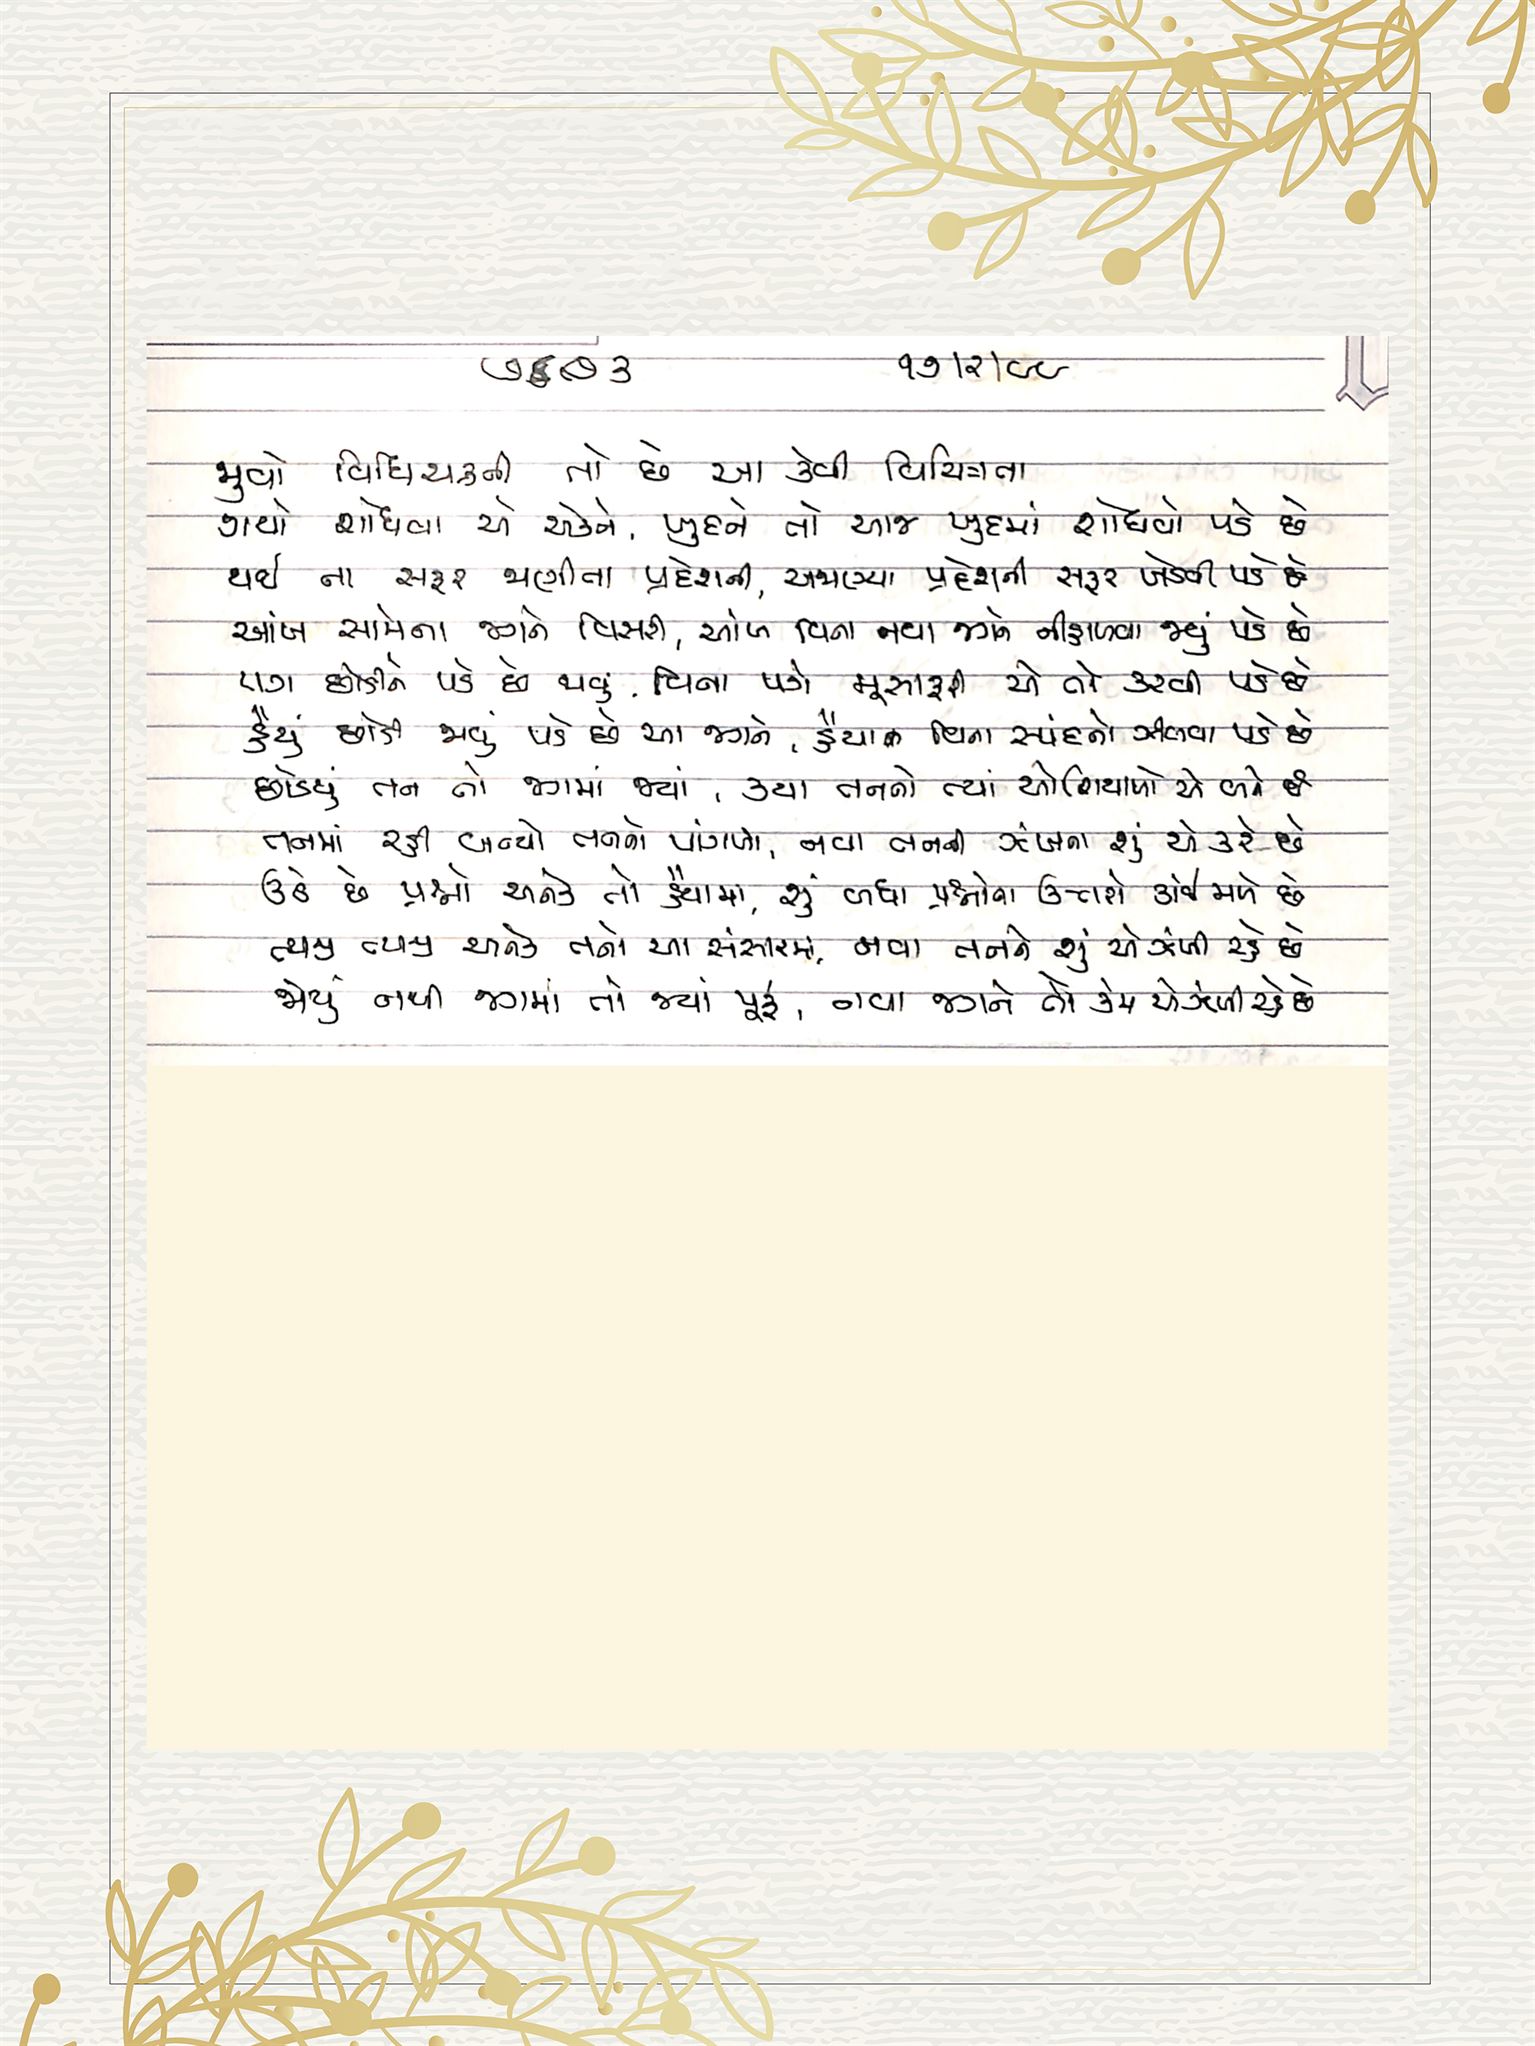 ૭૬૭૩ ૧૭/૨/૯૯
જુવો વિધિચક્રની તો છે આ કેવી વિચિત્રતા
ગયો શોધવા એ એકને, ખુદને તો આજ ખુદમાં શોધવો પડે છે
થઈ ના સફર જાણીતા પ્રદેશની, અજાણ્યા પ્રદેશની સફર ખેડવી પડે છે
આંખ સામેના જગને વિસરી, આંખ વિના નવા જગને નીહાળવા જવું પડે છે
પગ છોડીને પડે છે જાવું, વિના પગે મુસાફરી એ તો કરવી પડે છે
હૈયું છોડી જાવું પડે છે આ જગને, હૈયાના વિના સ્પંદનો ઝીલવા પડે છે
છોડયું તન તો જગમાં જ્યાં, કયા તનનો ત્યાં ઓશિયાળો એ બને છે
તનમાં રહી બન્યો તનનો પાંગળો, નવા તનની ઝંખના શું એ કરે છે
ઉઠે છે પ્રશ્નો અનેક તો હૈયામાં, શું બધા પ્રશ્નોના ઉત્તરો કોઈ મળે છે
ત્યજી ત્યજી અનેક તનો આ સંસારમાં, નવા તનને શું એ ઝંખી રહે છે
જોયું નથી જગમાં તો જ્યાં પૂરું, નવા જગને તો કેમ એ ઝંખી રહે છે